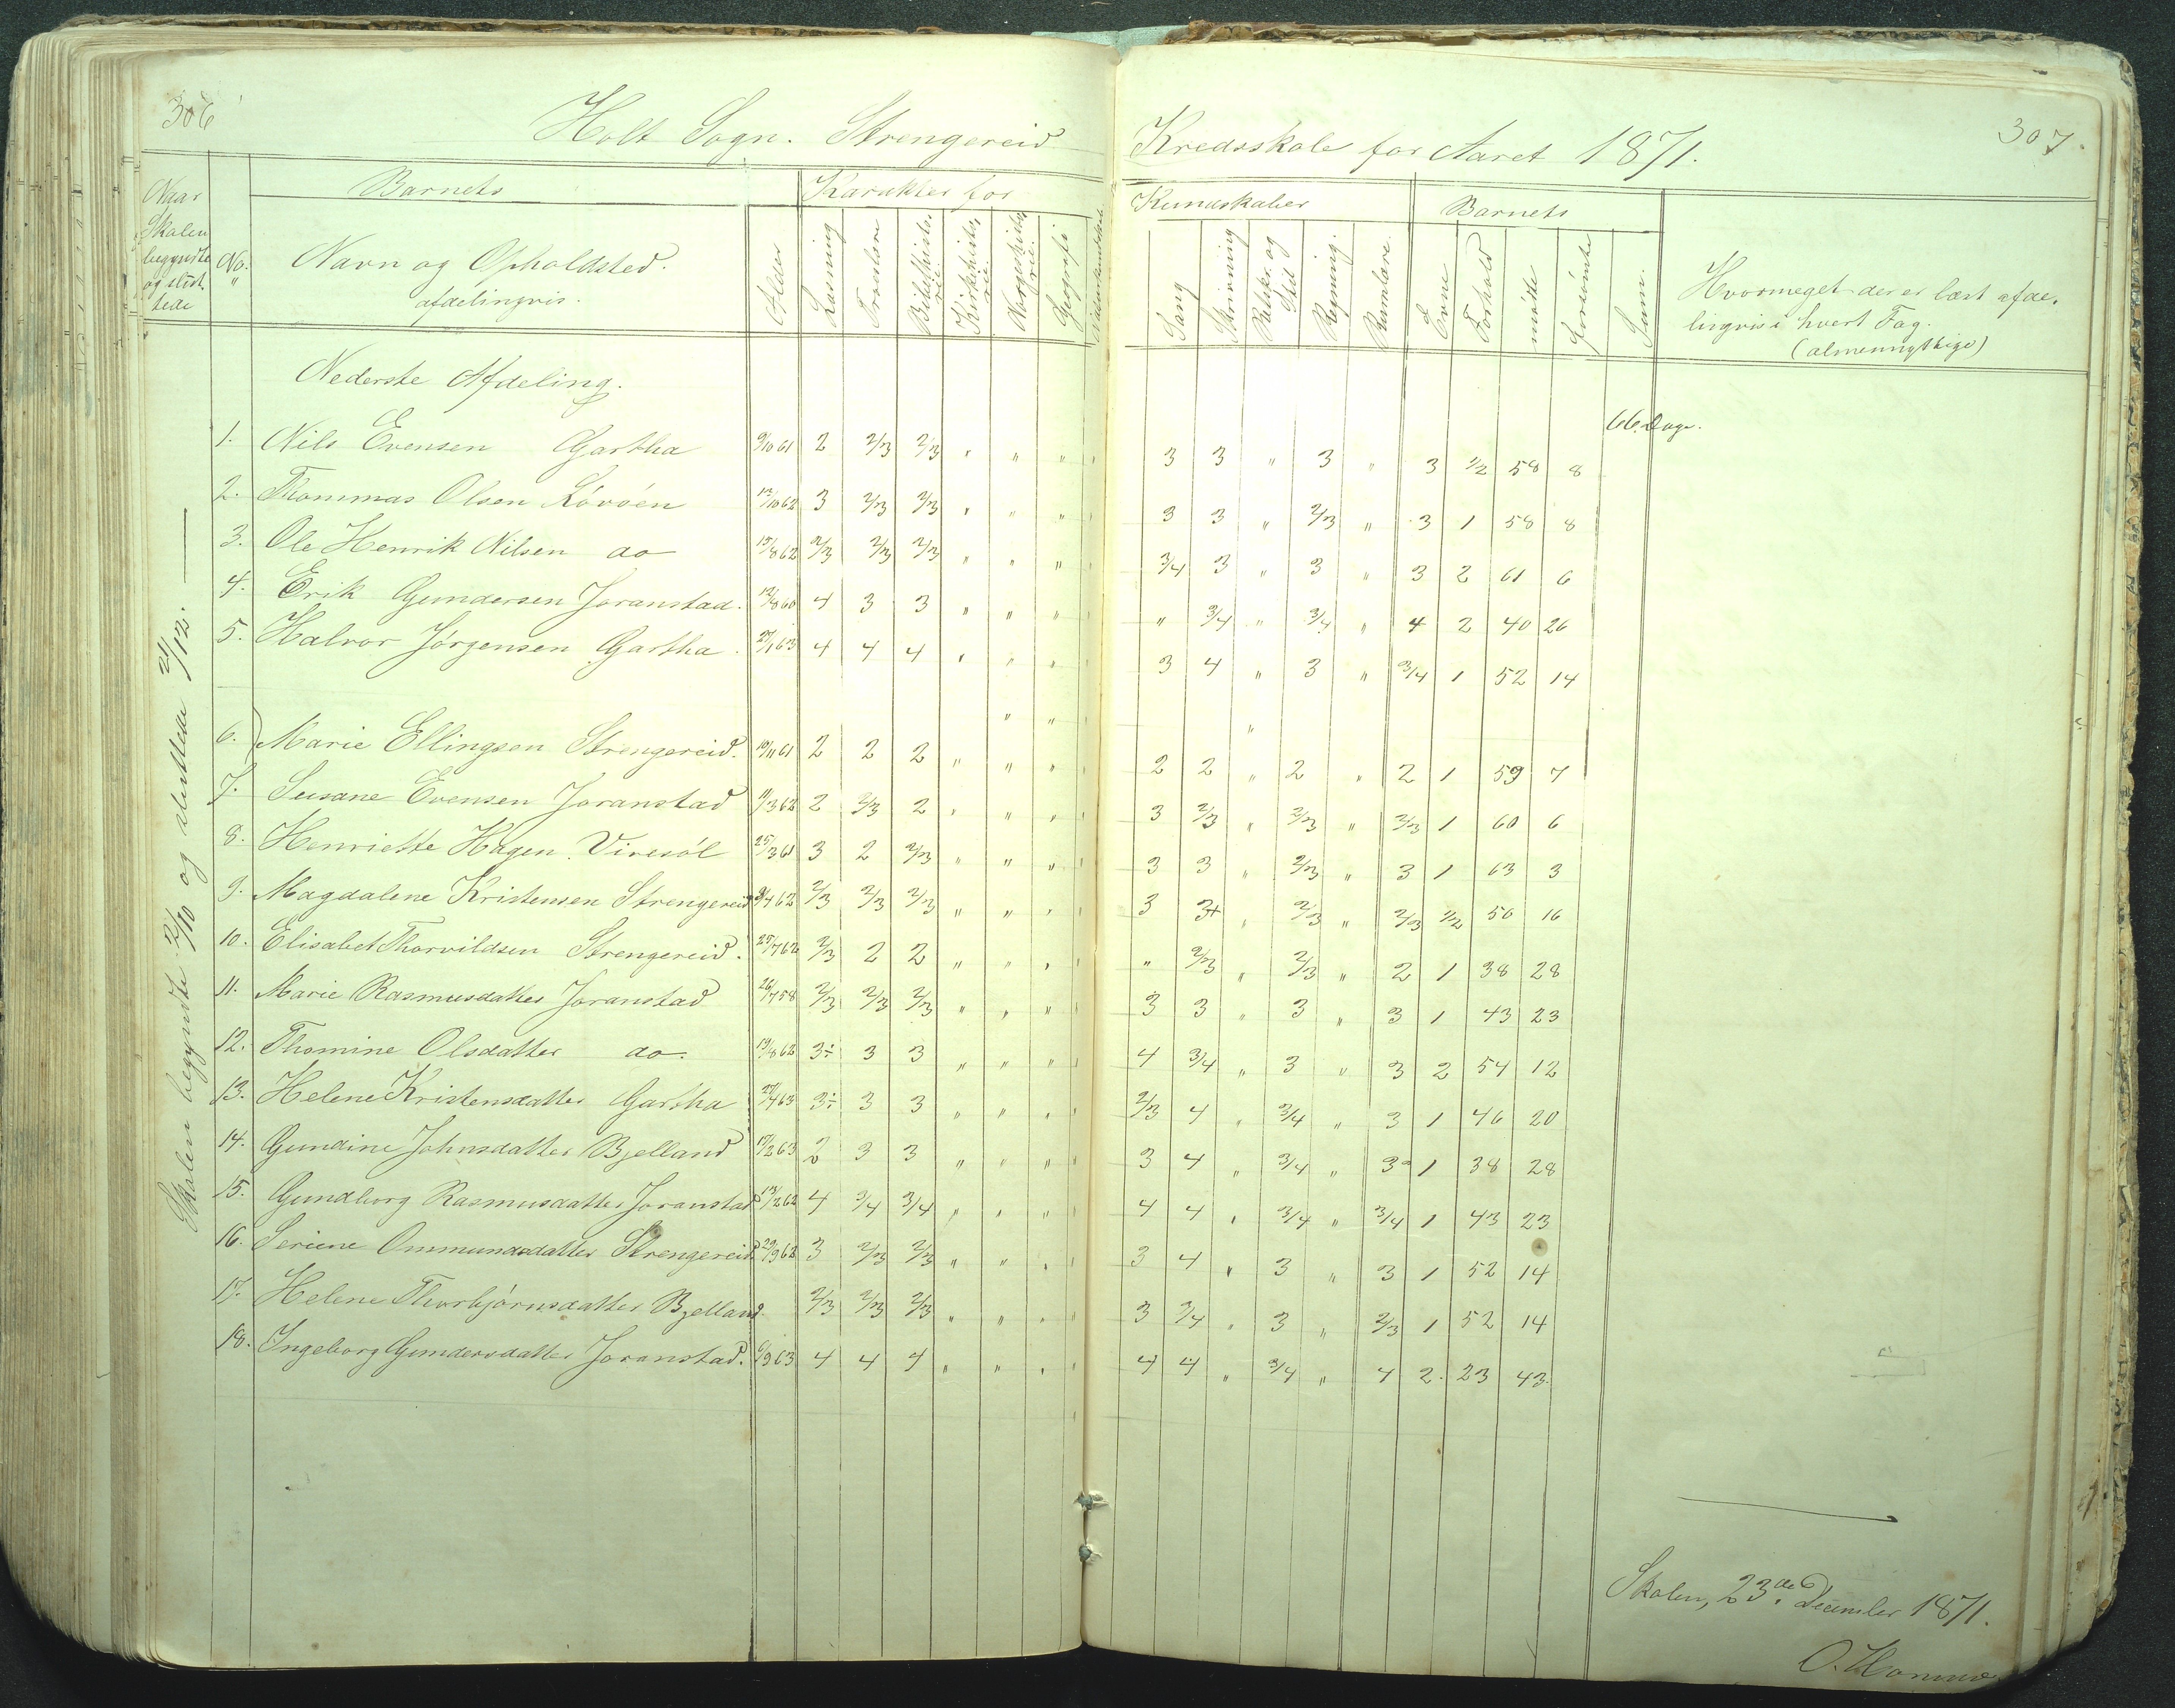 306
Holt Sogn. Strengereid
Kredsskole for Aaret 1871.
307.
Naar Skolen begyndte og slut- tede
No.
Barnets
Navn og Opholdsted. afdelingvis.
Alder
Karakter for
Læsning
Troeslære
Bibelhisto- rie
Kirkehisto- rie
Norgeshisto- rie
Geografi
Kundskaber
Sang
Skrivning
Retskr. og Stil
Regning.
Barnets
Evne
Forhold
mødte
forsömte
Sum.
Hvormeget der er læst afde- lingvis i hvert Fag.
Nederste Afdeling.
66 Dage.
1. Nils Evensen Gartha 9/10 61 2 2/3 2/3 " " " 3 3 " 3 " 3 1/2 58 8
2. Thommas Olsen Lövöen 13/10 62 3 2/3 2/3 " " " 3 3 " 2/3 " 3 1 58 8
3. Ole Henrik Nilsen do 15/8 62 2/3 2/3 2/3 " " " 3/4 3 " 3 " 3 2 61 6
4. Erik Gundersen Joranstad. 12/8 60 4 3 3 " " " " 3/4 " 3/4 " 4 2 40 26
5. Halvor Jörgensen Gartha. 27/1 63 4 4 4 " " " 3 4 " 3 " 3/4 1 52 14
" " "
6. Marie Ellingsen Strengereid. 19/11 61 2 2 2 " " " 2 2 " 2 " 2 1 59 7
7. Susane Evensen Joranstad 11/3 62 2 2/3 2 " " " 3 2/3 " 2/3 " 2/3 1 60 6
8. Henriette Hagen. Viresöl 25/3 61 3 2 2/3 " " " 3 3 " 2/3 " 3 1 63 3
9. Magdalene Kristensen Strengereid 9/4 62 2/3 2/3 2/3 " " " 3 3+ " 2/3 " 2/3 1/2 50 16
10. Elisabet Thorvildsen Strengereid. 27/7 62 2/3 2 2 " " " " 2/3 " 2/3 " 2 1 38 28
11. Marie Rasmusdatter Joranstad 26/7 58 2/3 2/3 2/3 " " " 3 3 " 3 " 3 1 43 23
12. Thomine Olsdatter do. 19/8 62 3÷ 3 3 " " " 4 3/4 " 3 " 3 2 54 12
13. Helene Kristensdatter Gartha 27/4 63 3÷ 3 3 " " " 2/3 4 " 3/4 " 3 1 46 20
14. Gundine Johnsdatter Bjelland 17/2 63 2 3 3 " " " 3 4 " 3/4 " 3 1 38 28
15. Gundborg Rasmusdatter Joranstad 13/2 62 4 3/4 3/4 " " " 4 4 " 3/4 " 3/4 1 43 23
16. Seriene Ommundsdatter Strengereid 29/9 62 3 2/3 2/3 " " " 3 4 " 3 " 3 1 52 14
17. Helene Thorbjörnsdatter Bjelland. 2/3 2/3 2/3 " " " 3 3/4 " 3 " 2/3 1 52 14
18. Ingeborg Gundersdatter Joranstad. 6/9 63 4 4 4 " " " 4 4 " 3/4 " 4 2. 23 43.
Skolen begyndte 2/10 og sluttede 21/12.
Skolen, 23de December 1871.